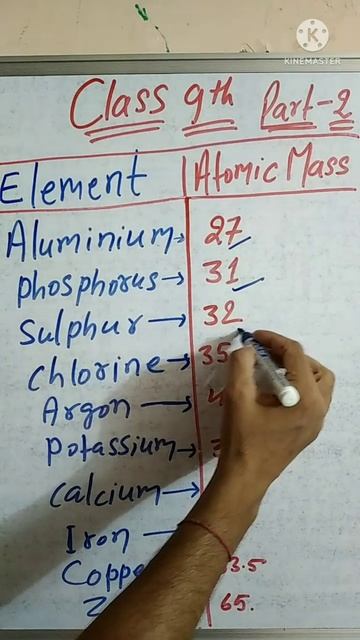 KINEMASTER
Class 9th Part-2
Element Atomic Mass
Aluminium 27
Phosphorus 31
Sulphur 32
Chlorine 35
Argon
Potassium
Calcium
Iron
3.5
65.